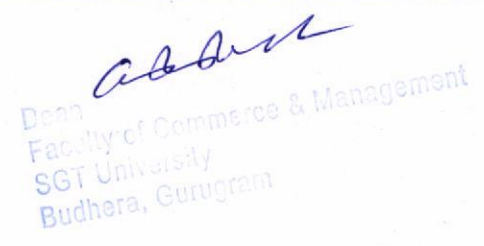 Dean
Faculty of Commerce & Management
SGT University
Budhera, Gurugram